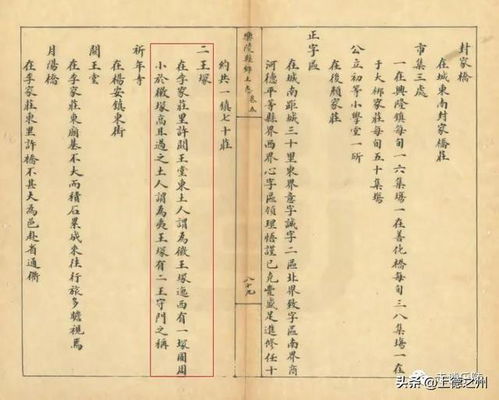 封家橋
在城東南封家橋莊
市集三處
一在興隆鎮每旬一六集場一在善化橋每旬三八集一在
于大柳家莊每旬五十集場
公立初等小學堂一所
在後顏家莊
正字區
在城南距城三十里東界意字誠字二區北界致字區南界商
河德平等縣界西界心字區領理悟謹已充豐盛足進修任十
樂陵縣鄉土志 卷五
八十九
約共一鎮七十莊
二王塚
在李家莊里許關王堂東土人謂為王塚迤西有一塚圍周
小於塚高且過之土人謂為夷王塚有二王守門之稱
祈年寺
在楊安鎮東街
關王堂
在李家莊東廟基不大而積石累成來往行旅多瞻視焉
月陽橋
在李家莊東里許橋不甚大為邑赴省通衢
头条 @上德之州